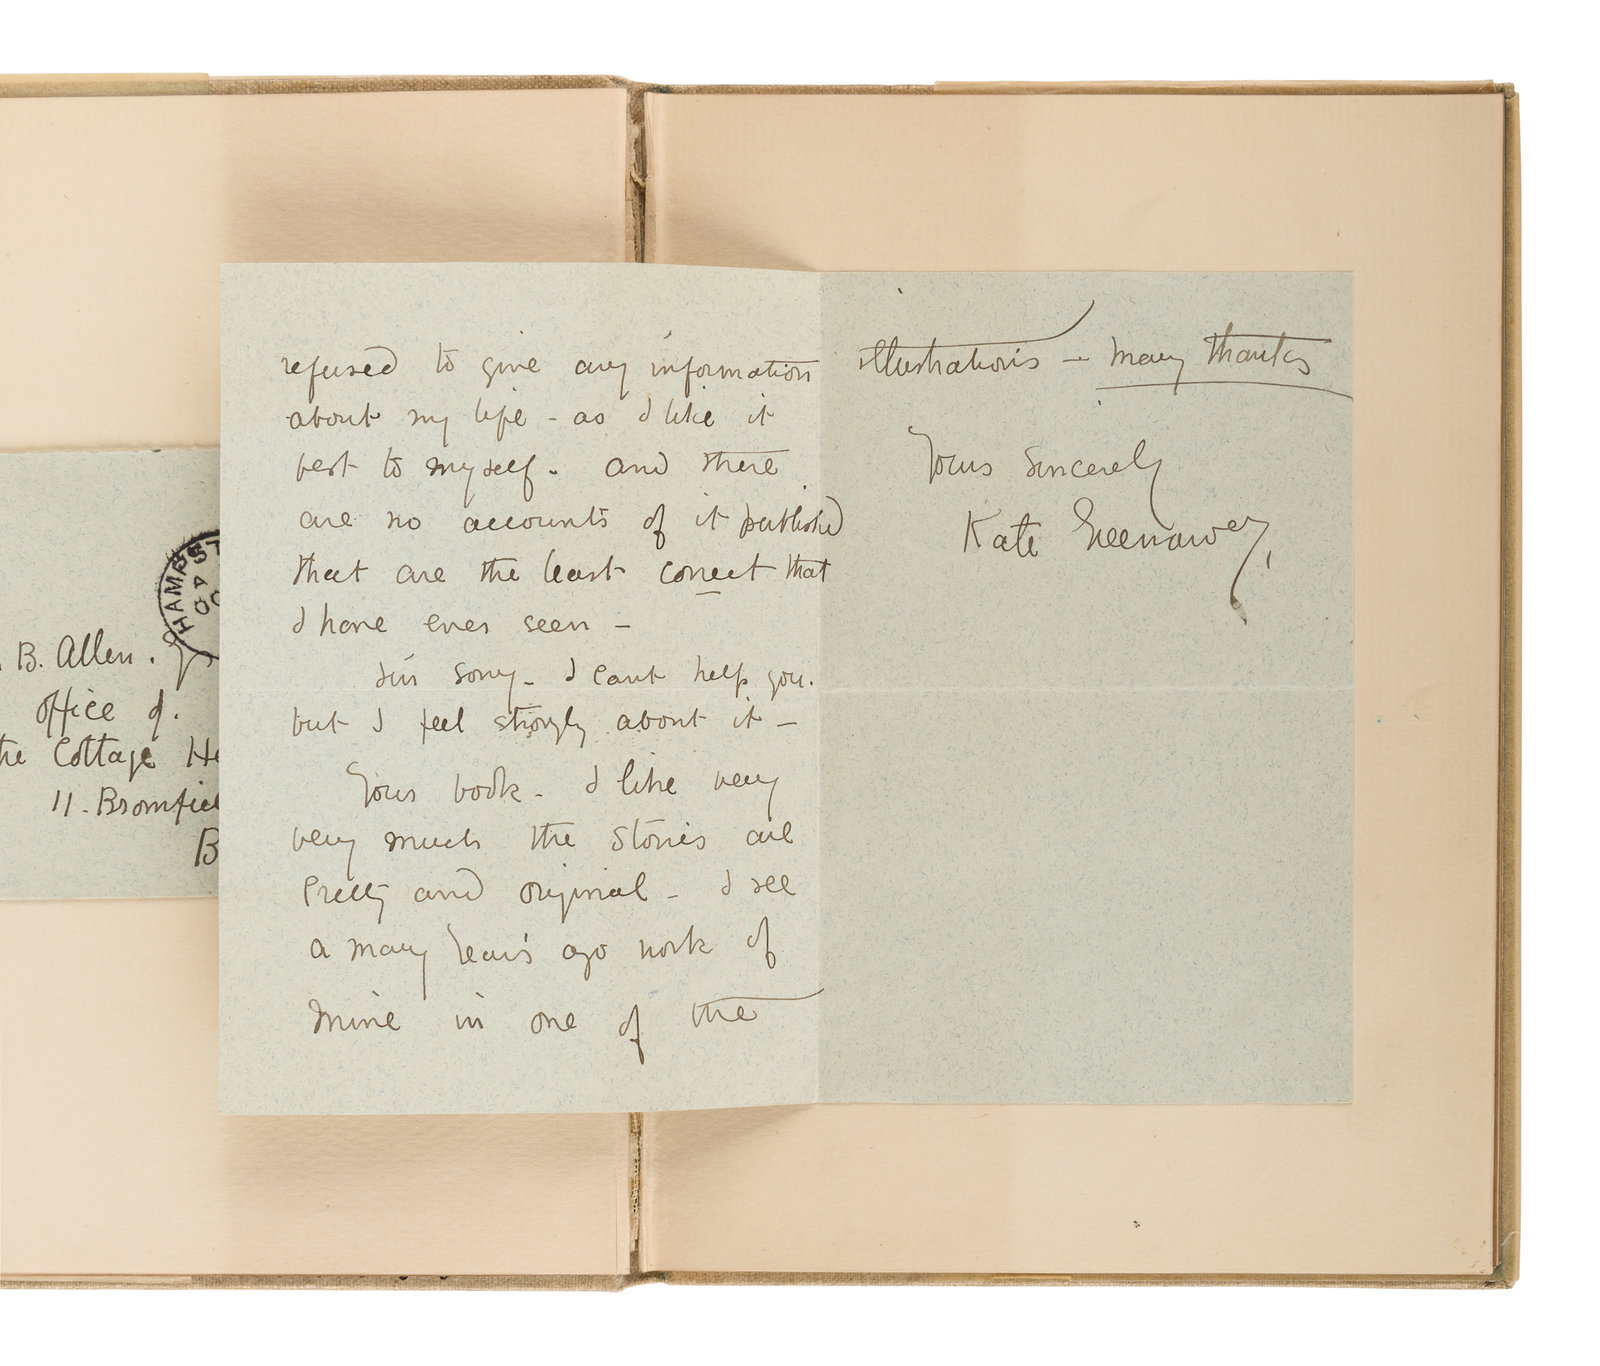 HAMPST
B. Allen.
office of.
the Cottage He
11. Bromfiel
B
refused to give any information
about my life - as I like it
best to myself. and there
are no accounts of it published
that are the least correct that
I have ever seen -
I'm sorry - I cant help you.
but I feel strongly about it -
Your book - I like very
very much the stories are
Pretty and original - I see
a many Years ago work of
mine in one of the
illustrations - many thanks
Yours sincerely
Kate Greenaway,